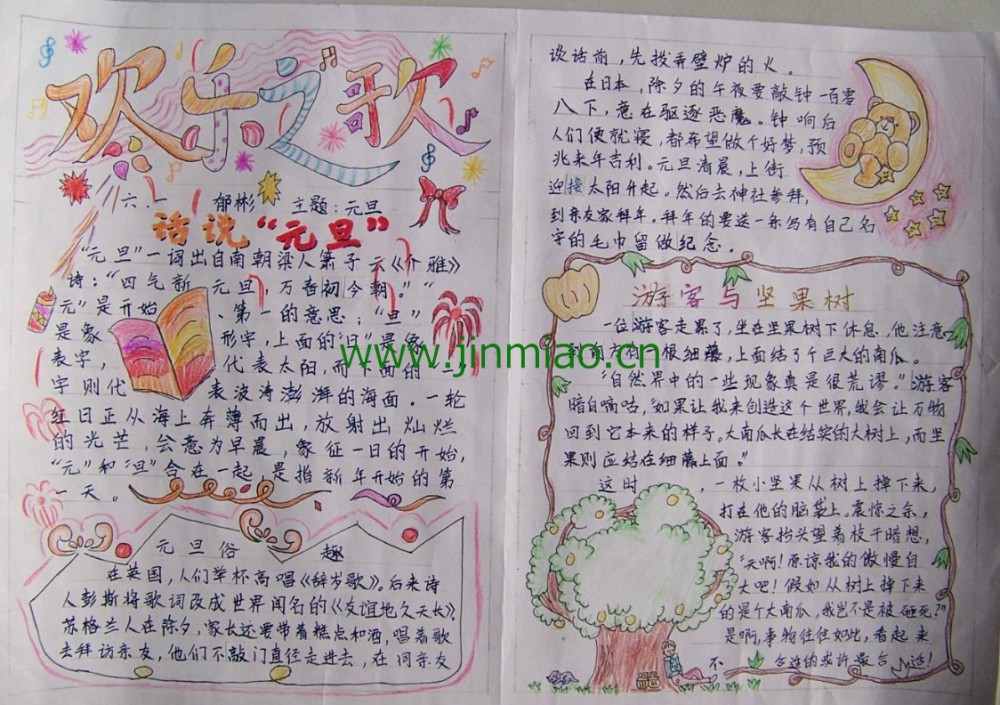 欢乐之歌
六. 郁彬 主题:元旦
话说“元旦”
“元旦”一词出自南朝梁人萧子云《介雅》
诗:“四气新元旦,万春初今朝。”“
元”是开始、第一的意思;“旦”
是象形字,上面的“日”是象
表字,代表太阳,而下面的“一”
字则代表波涛澎湃的海面.一轮
红日正从海上奔薄而出,放射出灿烂
的光芒,会意为早晨,象征一日的开始,
“元”和“旦”合在一起,是指新年开始的第
一天。
元旦俗趣
在英国,人们举杯高唱《辞岁歌》。后来诗
人彭斯将歌词改成世界闻名的《友谊地久天长》.
苏格兰人在除夕,家长还要带着糕点和酒,唱着歌
去拜访亲友,他们不敲门直径走进去,在同亲友
谈话前,先拨弄壁炉的火。
在日本,除夕的午夜要敲钟一百零
八下,意在驱逐恶魔。钟响后
人们便就寝,都希望做个好梦,预
兆来年吉利。元旦清晨,上街
迎接太阳升起。然后去神社参拜,
到亲友家拜年。拜年的要送一条写有自己名
字的毛巾留做纪念.
游客与坚果树
一位游客走累了,坐在坚果树下休息,他注意
到前方有 很细藤,上面结了个巨大的南瓜。
“自然界中的一些现象真是很荒谬。”游客
暗自嘀咕,“如果让我来创造这个世界,我会让万物
回到它本来的样子。大南瓜长在结实的大树上,而坚
果则应结在细藤上面。”
这时,一枚小坚果从树上掉下来,
打在他的脑袋上。震惊之余,
游客抬头望着枝干暗想,
“天啊!原谅我的傲慢自
大吧!假如从树上掉下来
的是个大南瓜,我岂不是被砸死?”
是啊,事物往往如此,看起来
不合适的或许最合适!
www.jinmiao.cn